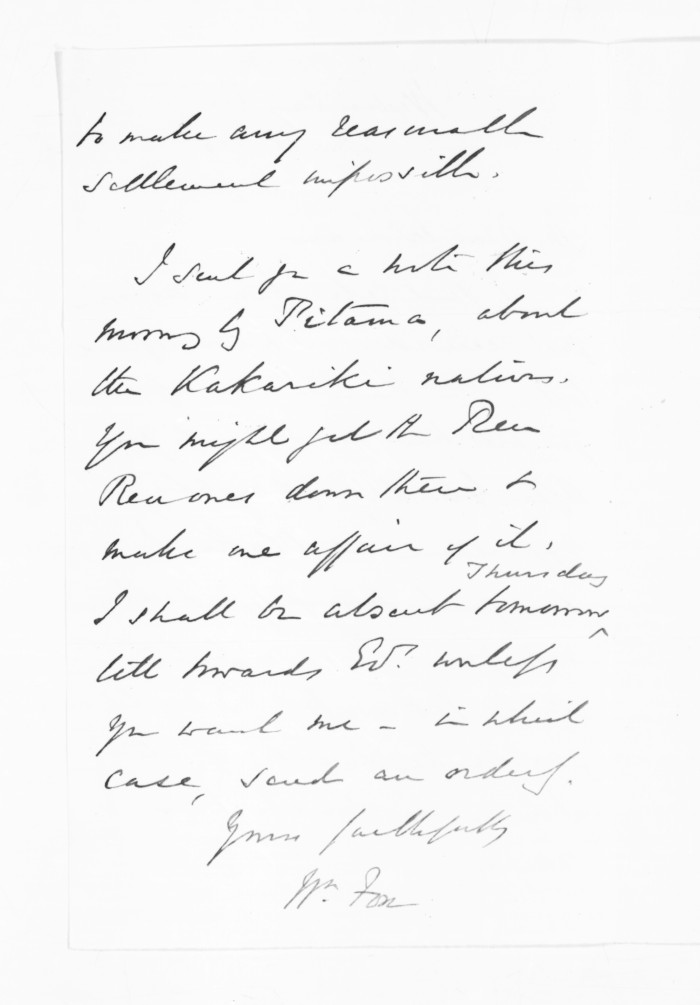 to make any reasonable
settlement impossible.
I sent you a note this
morng by Pitama, about
the Kakariki natives.
You might get the Reu
Reu ones down there to
make one affair of it.
Thursday
I shall be absent tomorrow
till towards Evg. unless
you want me – in which
case, send an orderly.
Yours faithfully
Wm. Fox